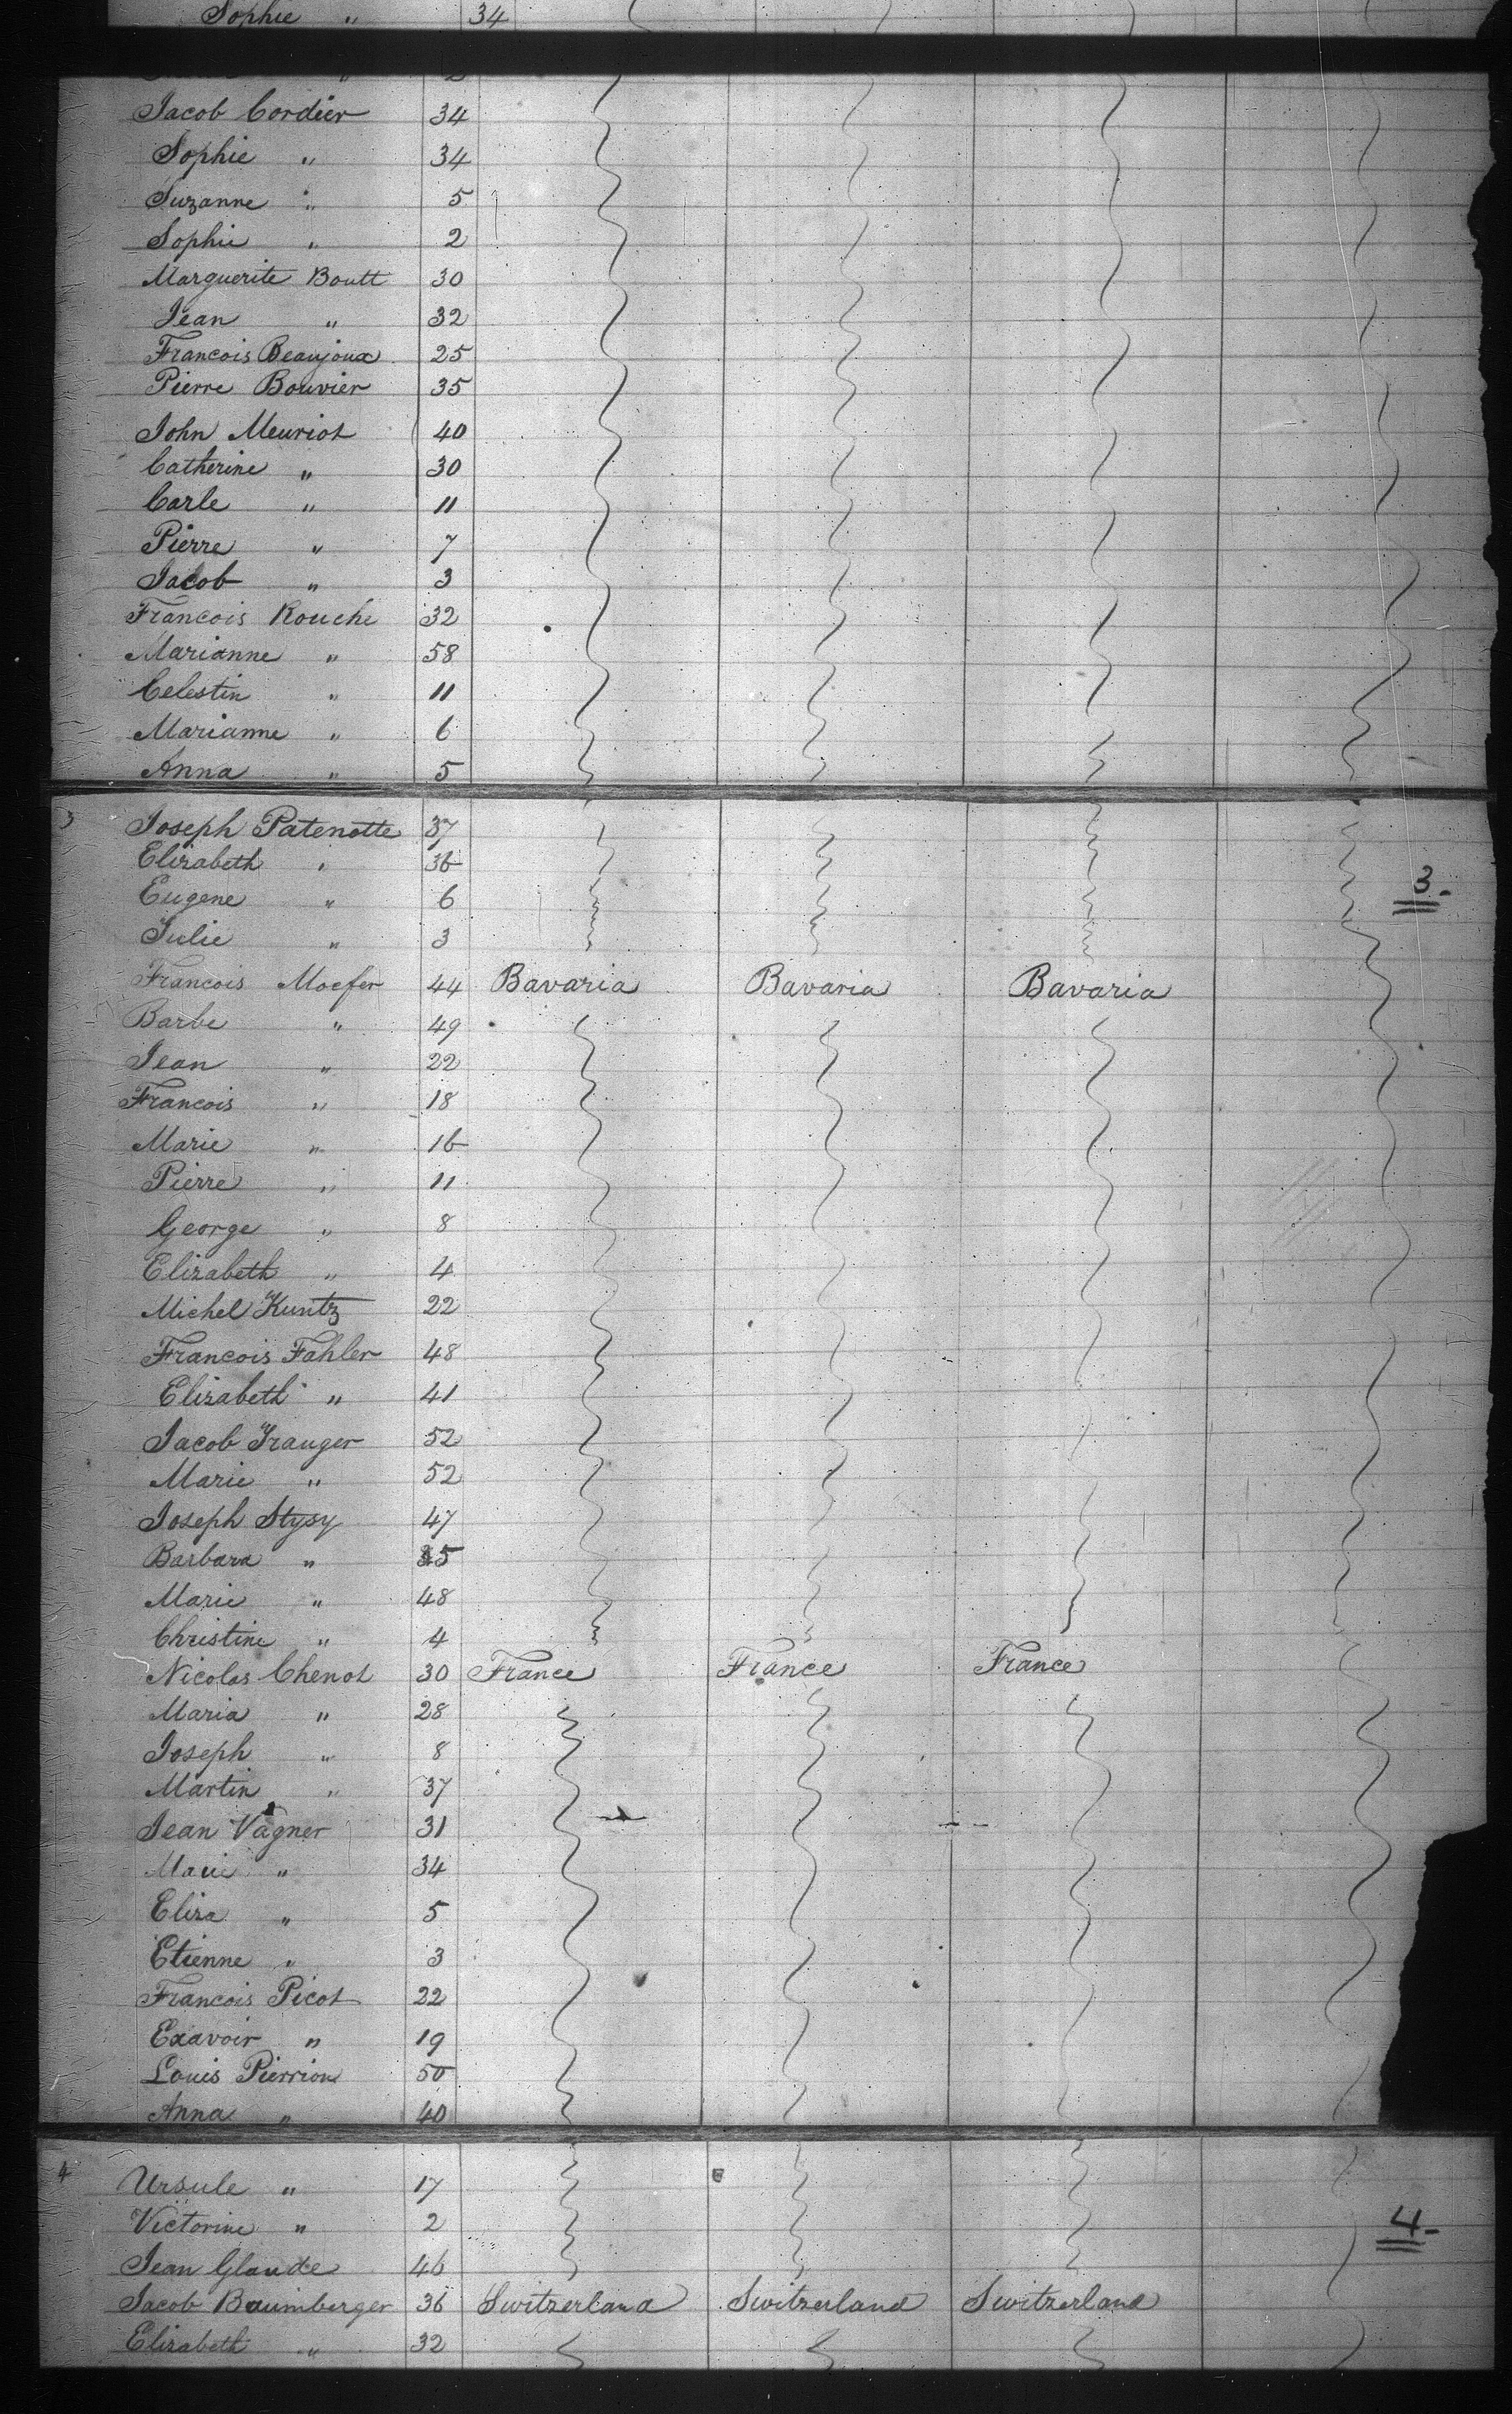 Sophie " 34
" 2
Jacob Cordier 34
Sophie " 34
Suzanne " 5
Sophie " 2
Marguerite Boutt 30
Jean " 32
Francois Beaujoux 25
Pierre Bouvier 35
John Meuriot 40
Catherine " 30
Carle " 11
Pierre " 7
Jacob " 3
Francois Rouche 32
Marianne " 58
Celestin " 11
Marianne " 6
Anna " 5
3 Joseph Patenotte 37
Elizabeth " 36
Eugene " 6 3-
Julie " 3
Francois Moefer 44 Bavaria Bavaria Bavaria
Barbe " 49
Jean " 22
Francois " 18
Marie " 16
Pierre " 11
George " 8
Elizabeth " 4
Michel Kuntz 22
Francois Fahler 48
Elizabeth " 41
Jacob Trauger 52
Marie " 52
Joseph Stysy 47
Barbara "
Marie " 48
Christine " 4
Nicolas Chenot 30 France France France
Maria " 28
Joseph " 8
Martin " 37
Jean Vagner 31
Marie " 34
Eliza " 5
Etienne " 3
Francois Picot 22
Exavoir " 19
Louis Pierrion 50
Anna " 40
4 Ursule " 17
Victorine " 2 4-
Jean Glaude 46
Jacob Baumberger 36 Switzerland Switzerland Switzerland
Elizabeth " 32